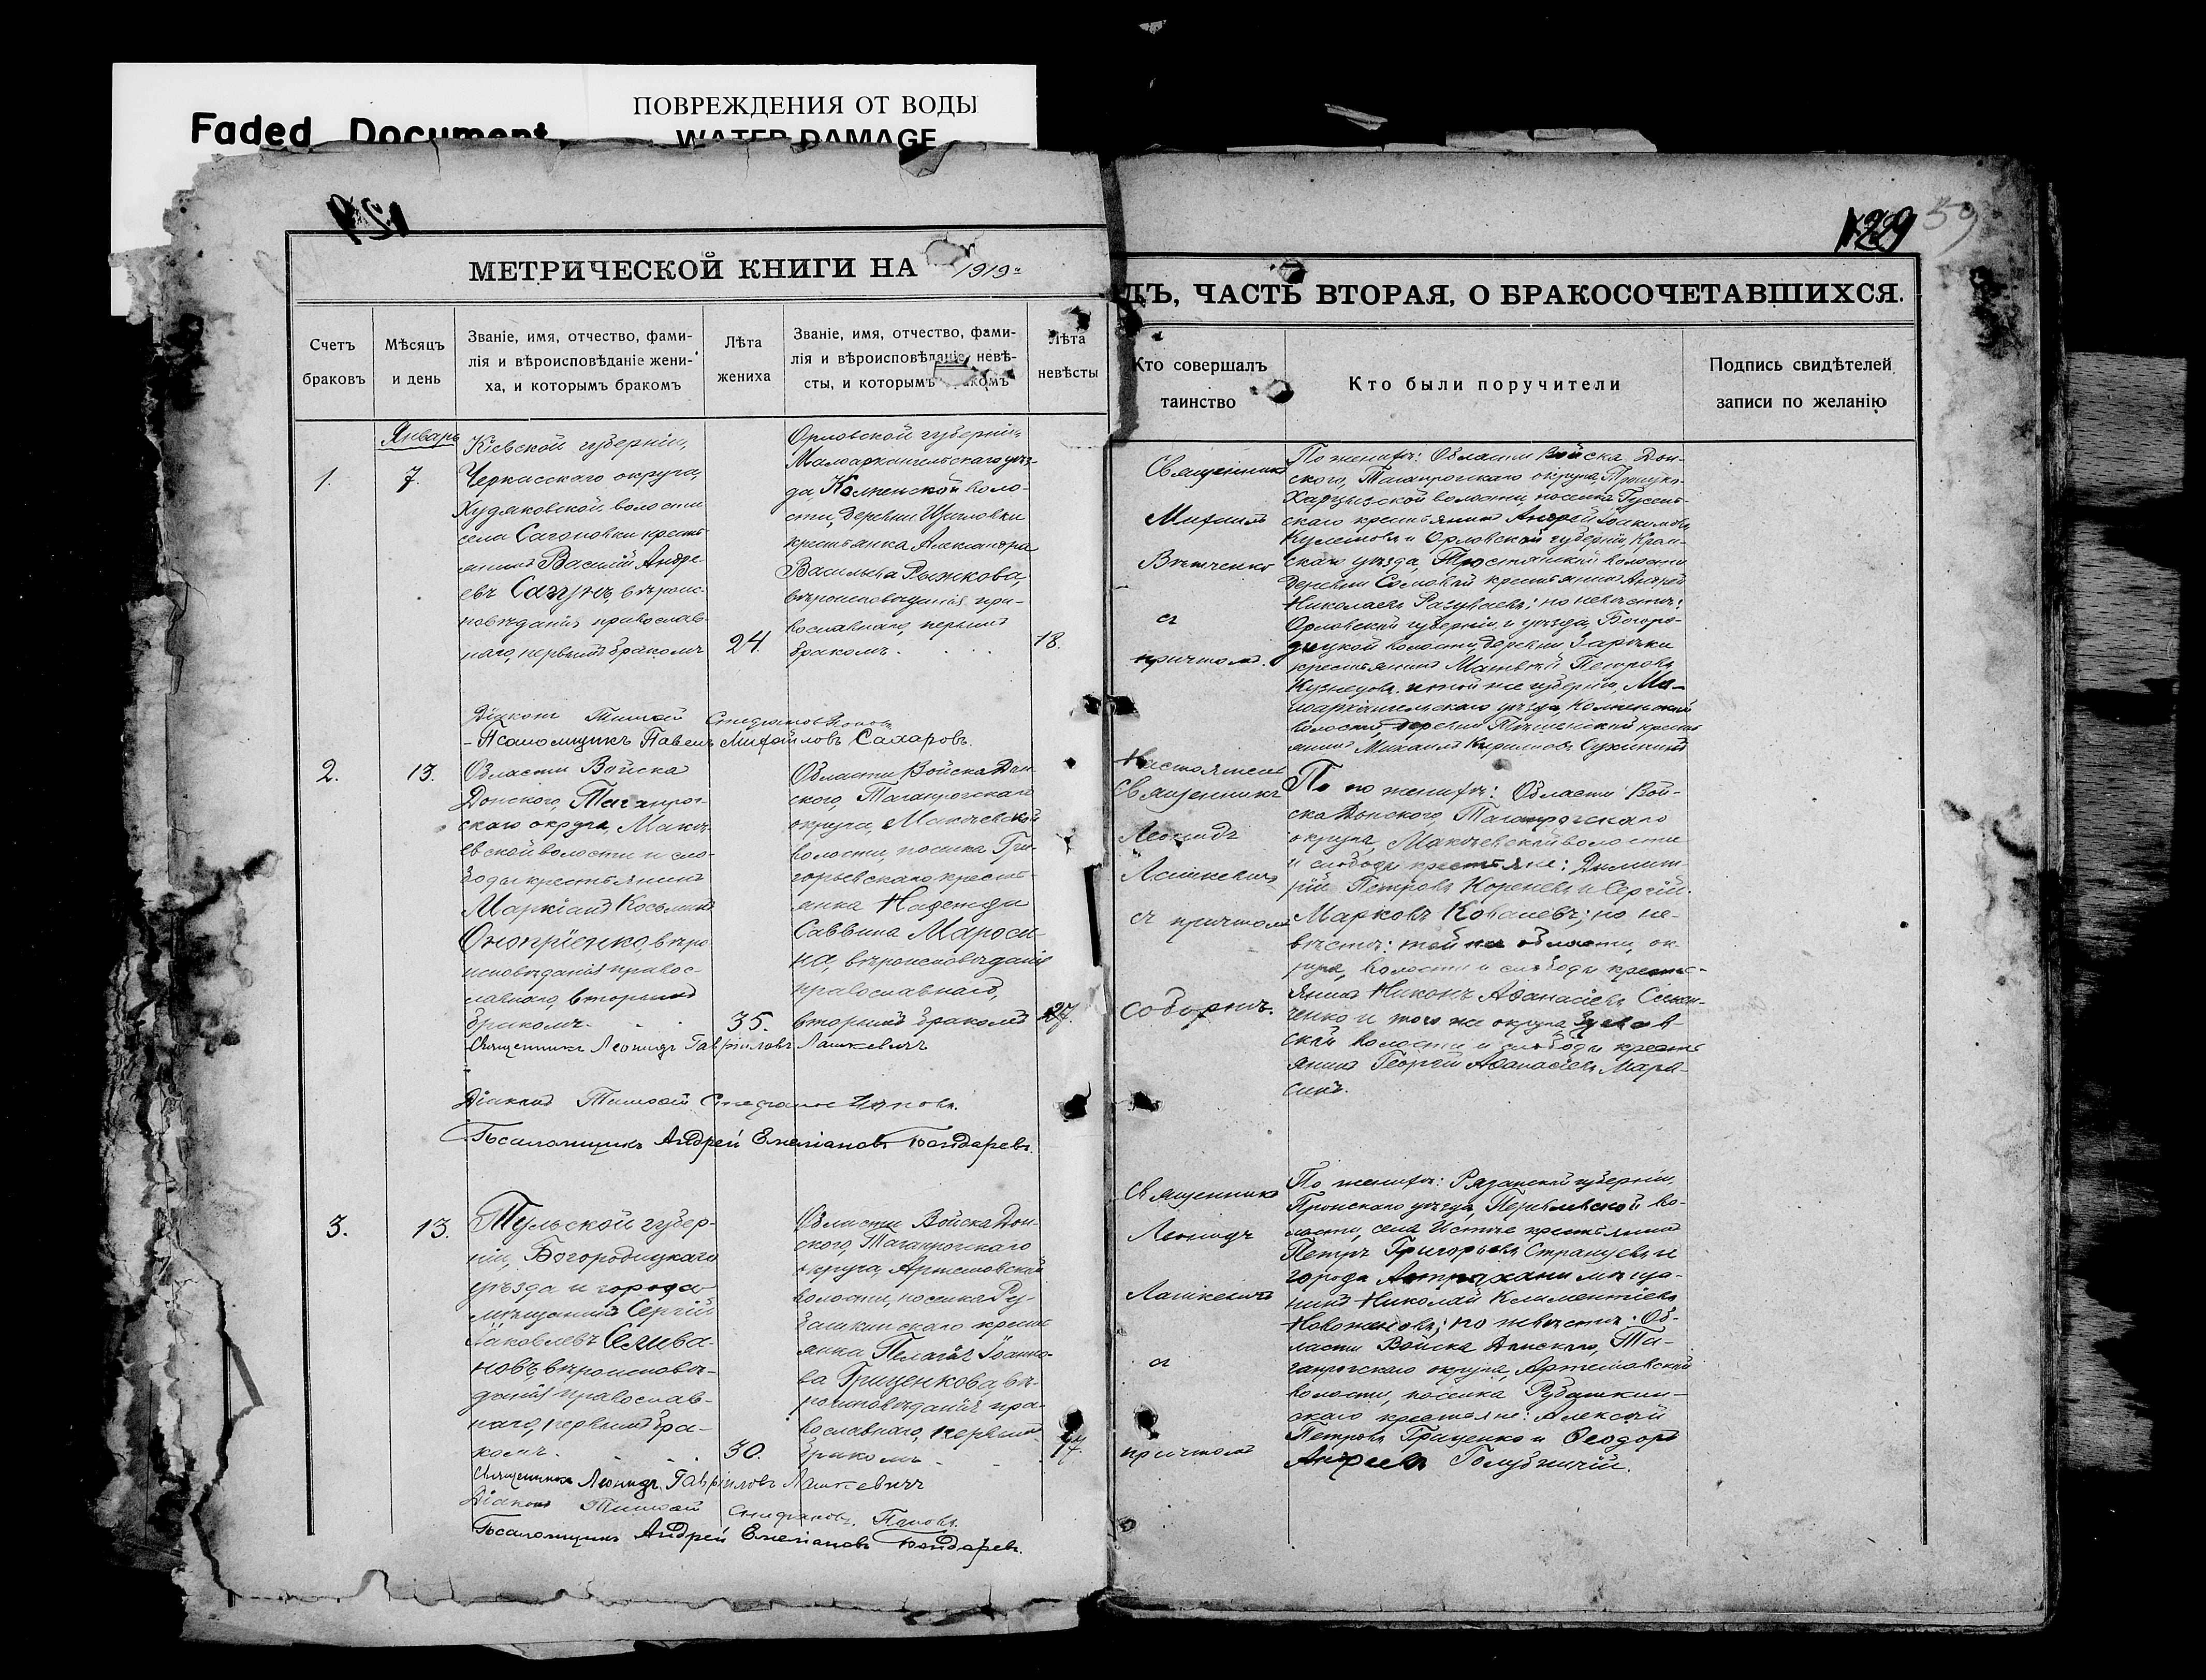 ПОВРЕЖДЕНИЯ ОТ ВОДЫ
Faded Document
WATER DAMAGE
129
59
МЕТРИЧЕСКОЙ КНИГИ НА 1919
ДЪ, ЧАСТЬ ВТОРАЯ, О БРАКОСОЧЕТАВШИХСЯ.
Счетъ
браковъ
Мѣсяцъ
и день
Званіе, имя, отчество, фами-
лія и вѣроисповѣданіе жени-
ха, и которымъ бракомъ
Лѣта
жениха
Званіе, имя, отчество, фами-
лія и вѣроисповѣданіе невѣ-
сты, и которымъ бракомъ
Лѣта
невѣсты
Кто совершалъ
таинство
Кто были поручители
Подпись свидѣтелей
записи по желанію
1.
Январь
7.
Кіевской губерніи,
Черкасскаго округа,
Худяковской волости
села Сагоновки кресть-
янинъ Василій Андре-
евъ Сагунъ, вѣроис-
повѣданія православ-
наго, первымъ бракомъ
24.
Орловской губерніи,
Малоархангельскаго уѣз-
да, Колпенской воло-
сти, деревни
крестьянка Александра
Васильева Рыжкова,
вѣроисповѣданія пра-
вославнаго, первымъ
бракомъ.
18.
Священникъ
Михаилъ
съ
причтомъ.
По женихѣ: Области Войска Дон-
ского, Таганрогскаго округа, Троицко-
Харцызской волости, поселка
скаго крестьянинъ Андрей Іоакимовъ
и Орловской губерніи, Кром-
скаго уѣзда, волости
деревни крестьянинъ Андрей
Николаевъ по невѣстѣ:
Орловской губерніи и уѣзда, Богоро-
дицкой волости, деревни Зарѣчки
крестьянинъ Матвѣй Петровъ
Кузнецовъ и той же губерніи, Ма-
лоархангельскаго уѣзда, Колпенской
волости, деревни кресть-
янинъ Михаилъ Кирилловъ
Діаконъ Тимофей Стефановъ Поповъ
Псаломщикъ Павелъ Михайловъ Сахаровъ.
2.
13.
Области Войска
Донского, Таганрог-
скаго округа, Макѣ-
евской волости и сло-
боды крестьянинъ
Маркіанъ Косьминъ
Оноприенко, вѣро-
исповѣданія правос-
лавнаго, вторымъ
бракомъ.
35.
Области Войска Дон-
ского, Таганрогскаго
округа, Макѣевской
волости, поселка Гри-
горьевскаго кресть-
янка Надежда
Саввина Мароси-
на, вѣроисповѣданія
православнаго,
вторымъ бракомъ
27.
Настоятель
Священникъ
Леонидъ
Лашкевичъ
съ причтомъ
соборнѣ.
По женихѣ: Области Вой-
ска Донского, Таганрогскаго
округа, Макѣевской волости
и слободы крестьяне: Димит-
рій Петровъ Кореневъ и Сергій
Марковъ Ковалевъ; по не-
вѣстѣ: той же области, ок-
руга, волости и слободы кресть-
янинъ Никонъ Афанасіевъ
и того же округа,
ской волости и слободы кресть-
янинъ Георгій Афанасіевъ Маро-
синъ.
Священникъ Леонидъ Гавріиловъ Лашкевичъ
Діаконъ Тимофей Стефановъ Поповъ.
Псаломщикъ Андрей Емеліановъ Бондаревъ.
3.
13.
Тульской губер-
ніи, Богородицкаго
уѣзда и города
мѣщанинъ Сергій
Іаковлевъ Селива-
новъ, вѣроисповѣ-
данія православ-
наго, первымъ бра-
комъ.
30.
Области Войска Дон-
ского, Таганрогскаго
округа, Артемовской
волости, поселка Ру-
башкинскаго кресть-
янка Пелагія Іоанно-
ва Гриценкова, вѣ-
роисповѣданія пра-
вославнаго, первымъ
бракомъ
17.
Священникъ
Леонидъ
Лашкевичъ
съ
причтомъ
По женихѣ: Рязанской губерніи,
Пронскаго уѣзда, во-
лости, села Истье крестьянинъ
Петръ Григорьевъ и
города Астрахани мѣща-
нинъ Николай Климентіевъ
по невѣстѣ: Об-
ласти Войска Донского, Та-
ганрогскаго округа, Артемовской
волости, поселка Рубашкин-
скаго крестьяне: Алексѣй
Петровъ Гриценко и Ѳеодоръ
Андреевъ Голубничій.
Священникъ Леонидъ Гавріиловъ Лашкевичъ
Діаконъ Тимофей Стефановъ Поповъ.
Псаломщикъ Андрей Емеліановъ Бондаревъ.